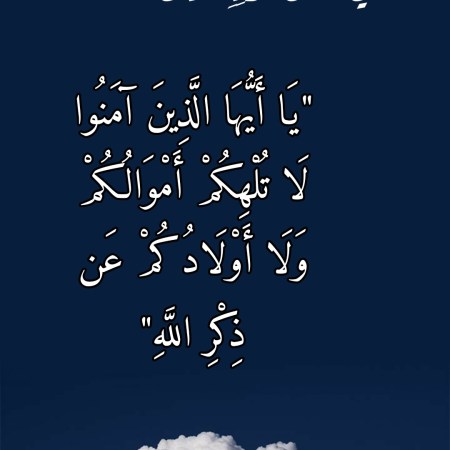 "يَا أَيُّهَا الَّذِينَ آمَنُوا
لَا تُلْهِكُمْ أَمْوَالُكُمْ
وَلَا أَوْلَادُكُمْ عَن
ذِكْرِ اللَّهِ"